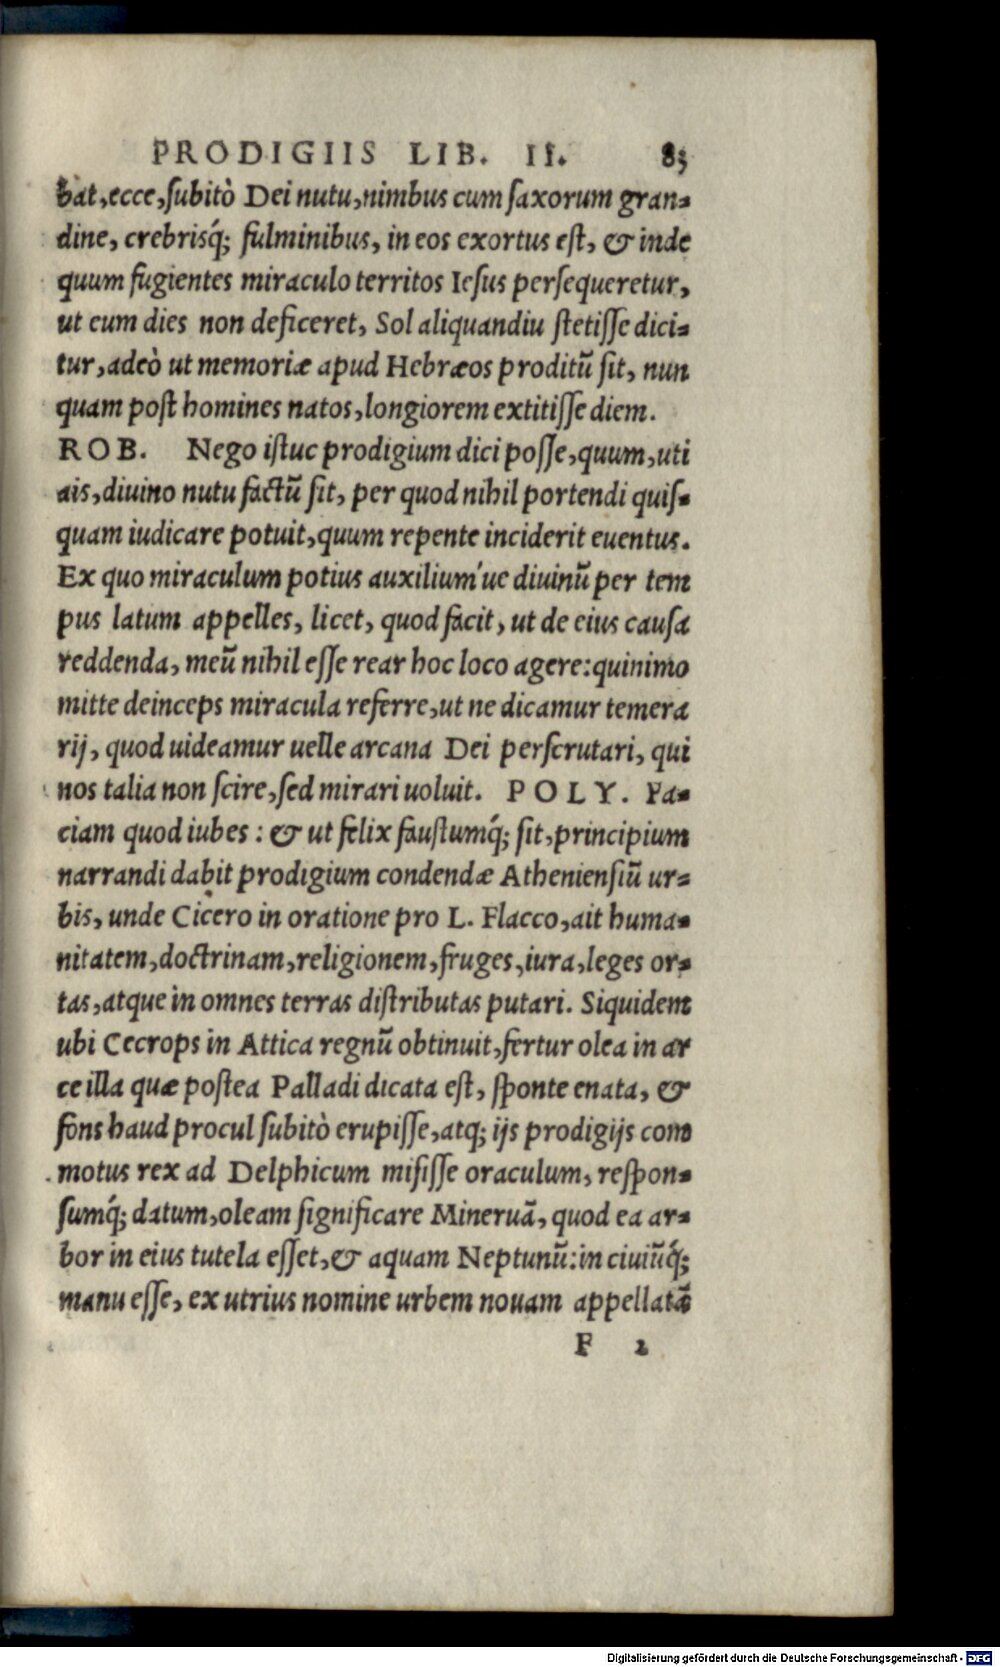 PRODIGIIS LIB. II. 83
bat, ecce, subitò Dei nutu, nimbus cum saxorum gran-
dine, crebrisq́; fulminibus, in eos exortus est, & inde
quum fugientes miraculo territos Iesus persequeretur,
ut eum dies non deficeret, Sol aliquandiu stetisse dici-
tur, adeò ut memoriæ apud Hebræos proditũ sit, nun
quam post homines natos, longiorem extitisse diem.
ROB. Nego istuc prodigium dici posse, quum, uti
ais, diuino nutu factũ sit, per quod nihil portendi quis-
quam iudicare potuit, quum repente inciderit euentus.
Ex quo miraculum potius auxilium'ue diuinũ per tem
pus latum appelles, licet, quod facit, ut de eius causa
reddenda, meũ nihil esse rear hoc loco agere: quinimo
mitte deinceps miracula referre, ut ne dicamur temera
rij, quod uideamur uelle arcana Dei perscrutari, qui
nos talia non scire, sed mirari uoluit. POLY. Fa-
ciam quod iubes: & ut felix faustumq́; sit, principium
narrandi dabit prodigium condendæ Atheniensiũ ur-
bis, unde Cicero in oratione pro L. Flacco, ait huma-
nitatem, doctrinam, religionem, fruges, iura, leges or-
tas, atque in omnes terras distributas putari. Siquidem
ubi Cecrops in Attica regnũ obtinuit, fertur olea in ar
ce illa quæ postea Palladi dicata est, sponte enata, &
fons haud procul subitò erupisse, atq; ijs prodigijs com
motus rex ad Delphicum misisse oraculum, respon-
sumq́; datum, oleam significare Mineruã, quod ea ar-
bor in eius tutela esset, & aquam Neptunũ: in ciuiũq́;
manu esse, ex utrius nomine urbem nouam appellatã
F 2
Digitalisierung gefördert durch die Deutsche Forschungsgemeinschaft - DFG